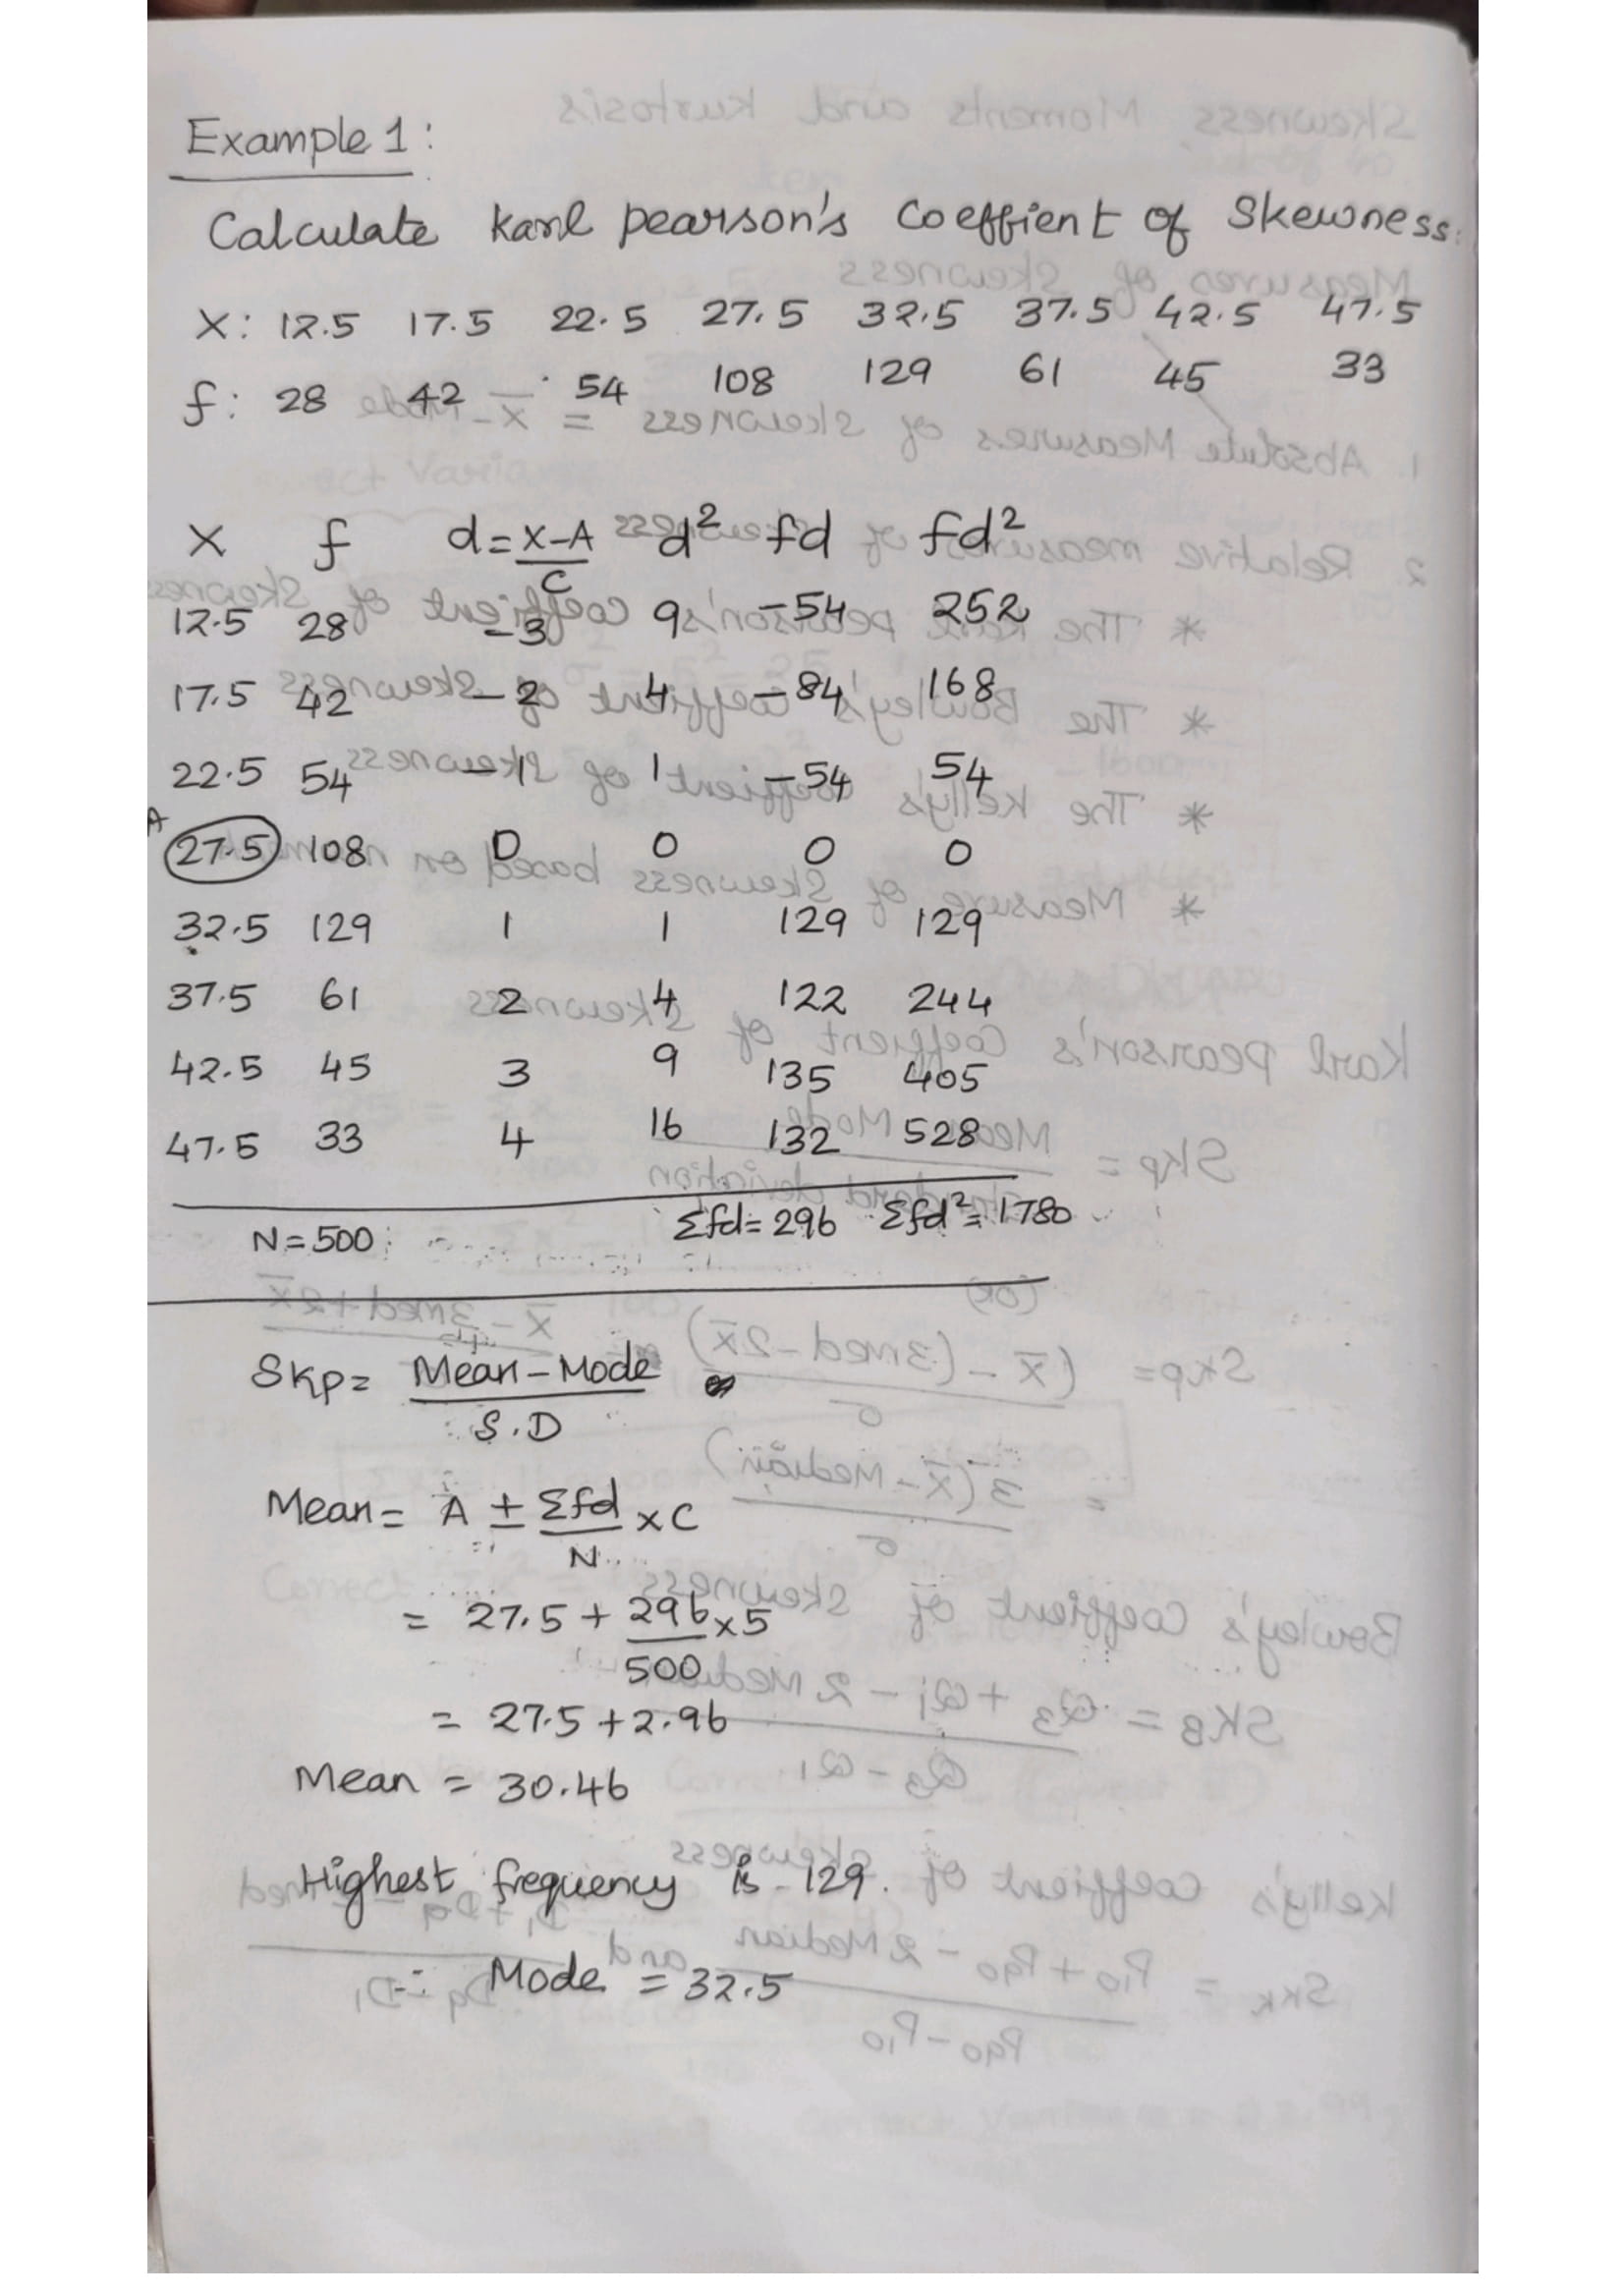 Example 1:
Calculate Karl pearson's Coeffient of Skewness:
X: 12.5 17.5 22.5 27.5 32.5 37.5 42.5 47.5
f: 28 42 54 108 129 61 45 33
X f d=X-A/C d² fd fd²
12.5 28 -3 9 -54 252
17.5 42 -2 4 -84 168
22.5 54 -1 1 -54 54
A
27.5 108 0 0 0 0
32.5 129 1 1 129 129
37.5 61 2 4 122 244
42.5 45 3 9 135 405
47.5 33 4 16 132 528
N=500 Σfd=296 Σfd²=1780
Skp= Mean-Mode
S.D
Mean= A ± Σfd/N ×C
= 27.5 + 296/500 ×5
= 27.5+2.96
Mean = 30.46
Highest frequency is 129.
∴ Mode = 32.5